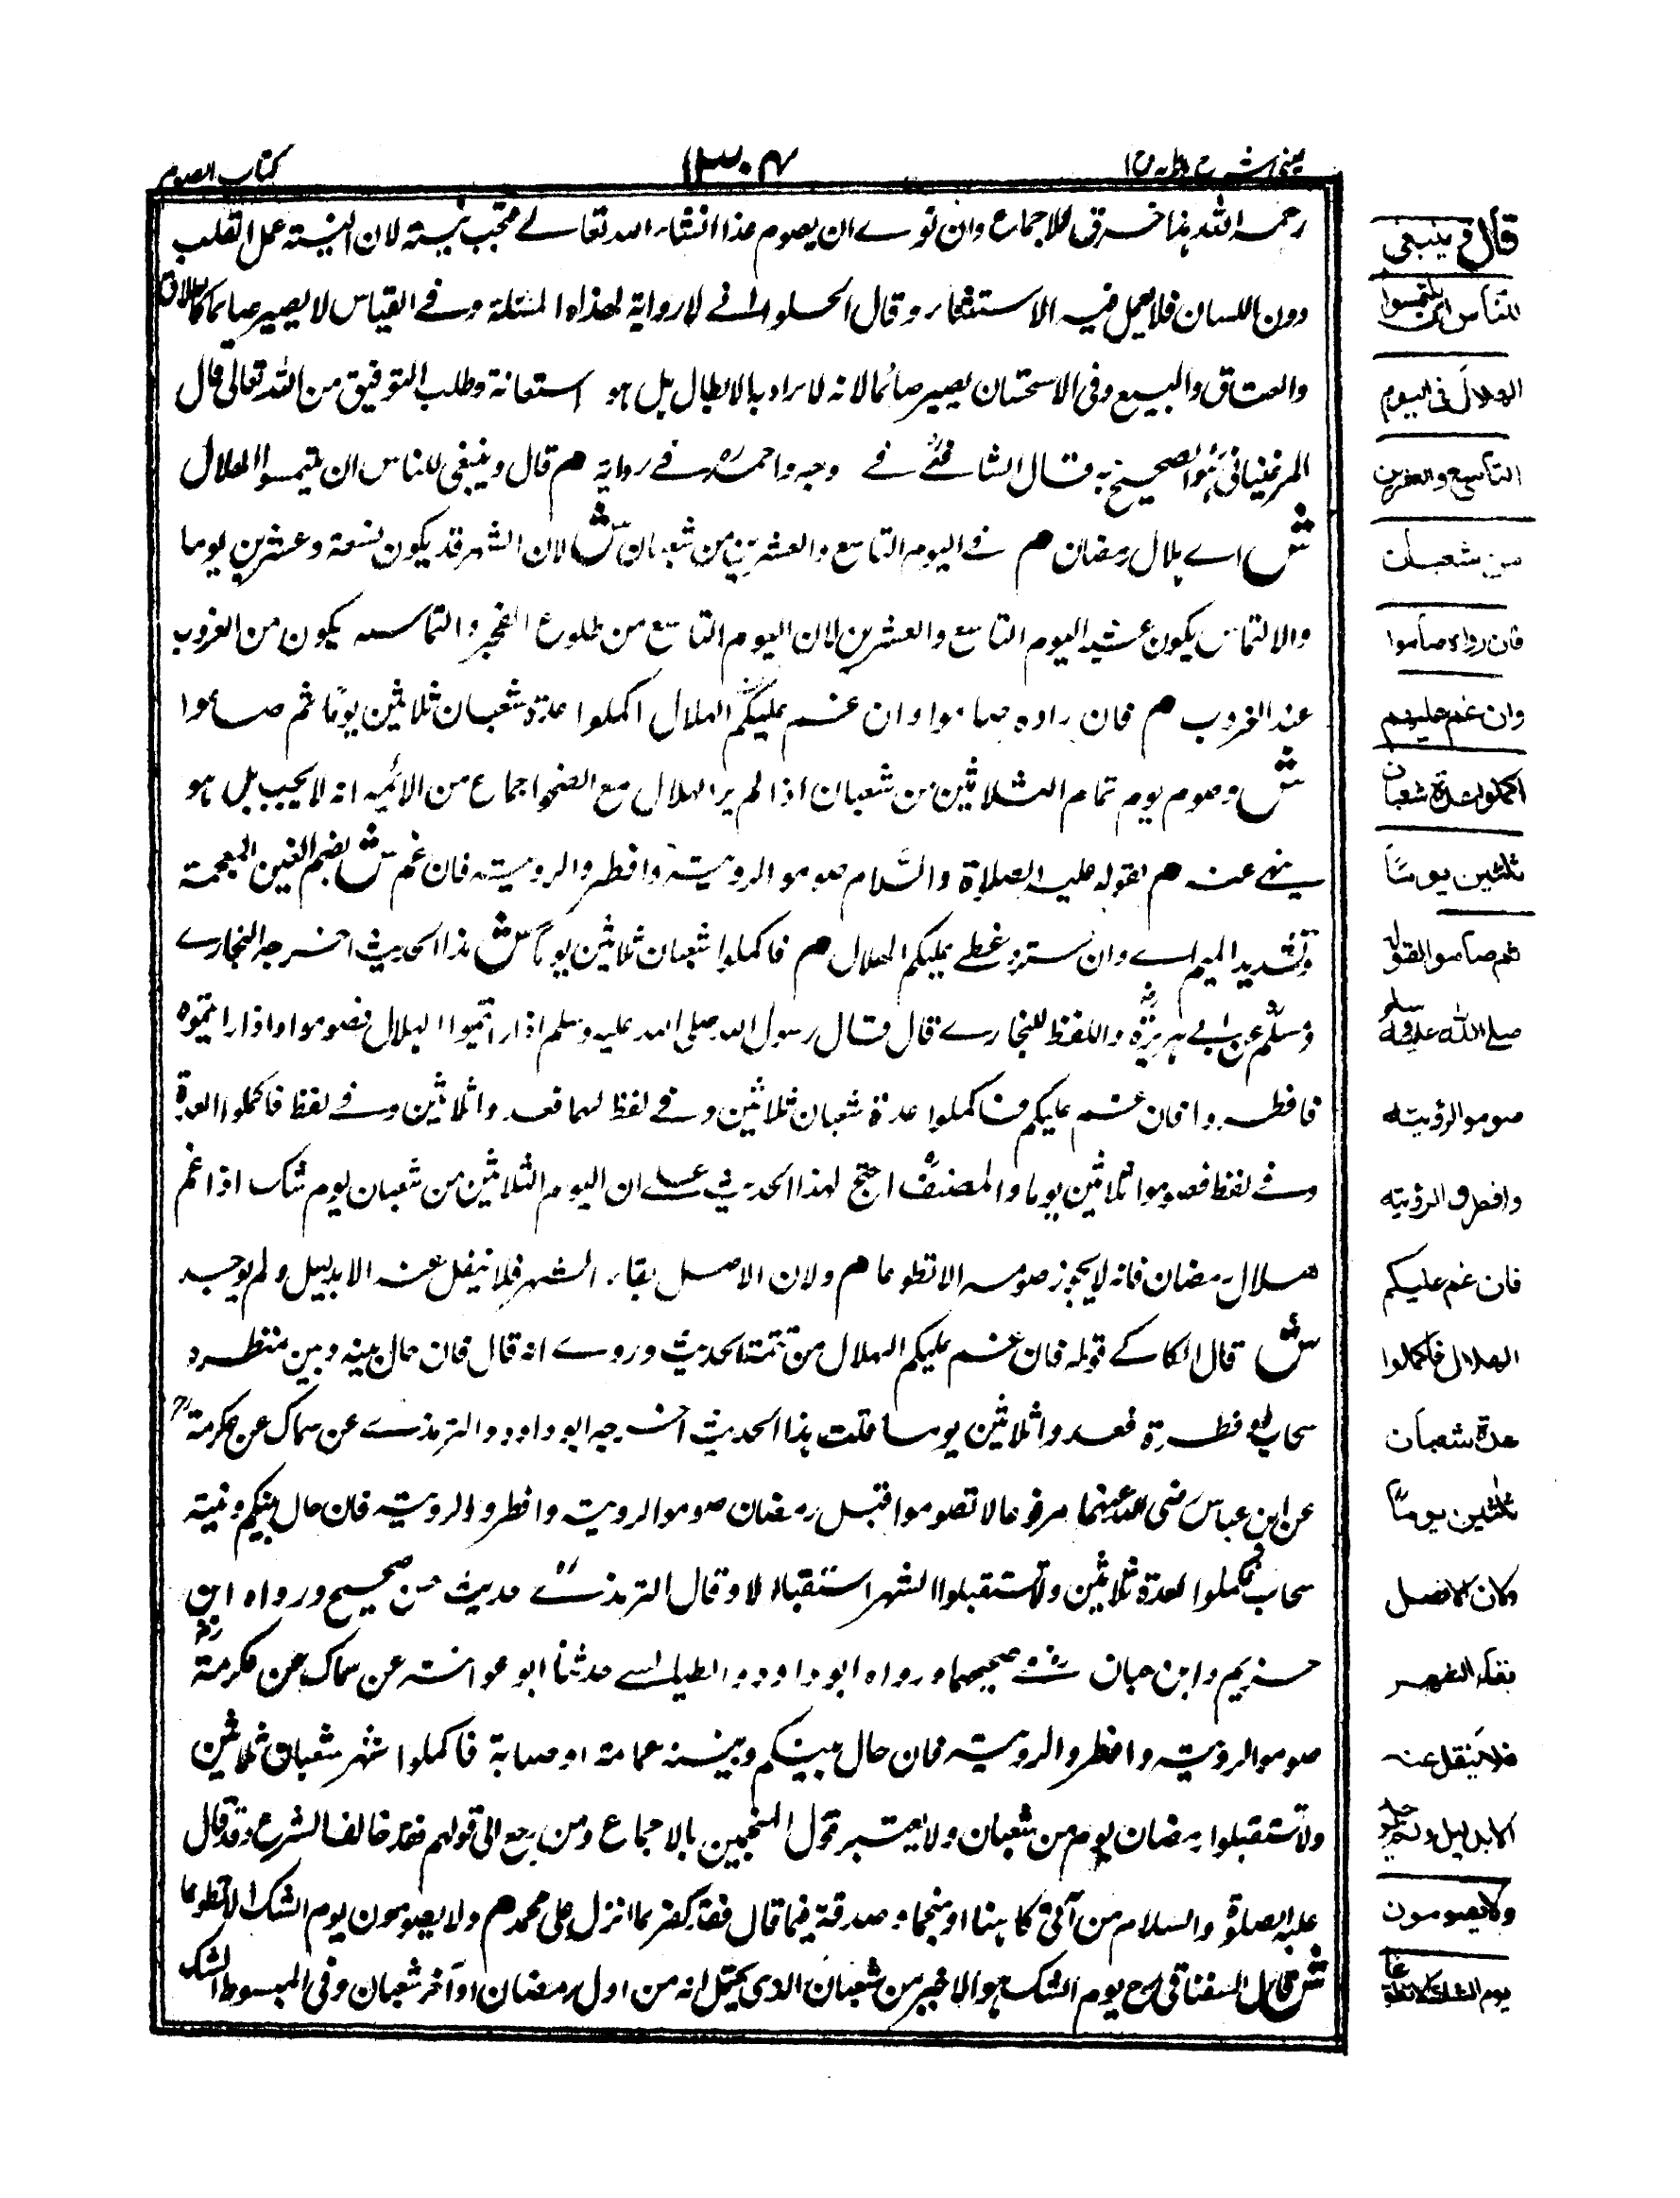 كتاب الصوم
١٣٠٤
عينى شرح هدايه ج١
رحمه الله هذا خرق للاجماع وان نوے ان يصوم غدا انشاء الله تعالے فتجب نيته لان النية عمل القلب
دون اللسان فلا يعمل فيه الاستثناء وقال الحلوانے لا رواية لهذه المسئلة وفے القياس لا يصير صائما كالطلاق
والعتاق والبيع وفى الاستحسان يصير صائما لانه لا يراد به الابطال بل هو استعانة وطلب التوفيق من الله تعالى قال
المرغينانى هو الصحيح به قال الشافعى فے وجه واحمد فے رواية هم قال وينبغى للناس ان يلتمسوا الهلال
ش اے هلال رمضان هم فے اليوم التاسع والعشرين من شعبان ش لان الشهر قد يكون تسعة وعشرين يوما
والالتماس يكون عشية اليوم التاسع والعشرين لان اليوم التاسع من طلوع الفجر والتماسه يكون من الغروب
عند الغروب هم فان راوه صاموا وان غم عليكم الهلال اكملوا عدة شعبان ثلاثين يوما ثم صاموا
ش وصوم يوم تمام الثلاثين من شعبان اذا لم ير الهلال مع الصحوا جماع من الائمه انه لا يجب بل هو
ينهے عنه هم لقوله عليه الصلاة والسلام صوموا لرويته وافطروا لرويته فان غم ش بضم الغين المعجمة
وتشديد الميم اے وان ستر وغطے عليكم الهلال هم فاكملوا شعبان ثلاثين يوما ش هذا الحديث اخرجه البخارے
ومسلم عن ابے هريرة واللفظ للبخارے قال قال رسول الله صلى الله عليه وسلم اذا رايتموا الهلال فصوموا واذا رايتموه
فافطروا فان غم عليكم فاكملوا عدة شعبان ثلاثين وفے لفظ لهما فعدوا ثلاثين وفے لفظ فاكملوا العدة
وفے لفظ فصوموا ثلاثين يوما والمصنف احتج لهذا الحديث علے ان اليوم الثلاثين من شعبان يوم شك اذا غم
هلال رمضان فانه لا يجوز صومه الا تطوعا هم ولان الاصل بقاء الشهر فلا ينقل عنه الا بدليل ولم يوجد
ش قال الكاكے قوله فان غم عليكم الهلال من تتمة الحديث وروے انه قال فان حال بينه وبين منظره
سحاب او قطرة فعدوا ثلاثين يوما قلت هذا الحديث اخرجه ابو داود والترمذے عن سماك عن عكرمة
عن ابن عباس رضى الله عنهما مرفوعا لا تصوموا قبل رمضان صوموا لرويته وافطروا لرويته فان حال بينكم وبينه
سحاب فكملوا العدة ثلاثين ولا تستقبلوا الشهر استقبالا وقال الترمذے حديث حسن صحيح ورواه ابن
خزيم وابن حبان فے صحيحهما ورواه ابو داود الطيالسے حدثنا ابو عوانة عن سماك عن عكرمة
صوموا لرؤيته وافطروا لرويته فان حال بينكم وبينه غمامة او ضبابة فاكملوا شهر شعبان ثلاثين
ولا تستقبلوا رمضان بيوم من شعبان ولا يعتبر قول المنجمين بالاجماع ومن رجع الى قولهم فقد خالف الشرع وقد قال
عليه الصلوة والسلام من آتى كاهنا او منجما وصدقه فيما قال فقد كفر بما انزل على محمد هم ولا يصومون يوم الشك الا تطوعا
ش قال السغناقى رح يوم الشك هو الاخير من شعبان الذى يحتمل انه من اول رمضان او آخر شعبان وفى المبسوط الشك
قال وينبغى
للناس ان يلتمسوا
الهلال فى اليوم
التاسع والعشرين
من شعبان
فان رواه صاموا
وان غم عليهم
اكملوا عدة شعبان
ثلثين يوما
ثم صاموا لقوله
صلے الله عليه وسلم
صوموا لرؤيته
وافطروا لرؤيته
فان غم عليكم
الهلال فاكملوا
عدة شعبان
ثلثين يوما
ولان الاصل
بقاء الشهر
فلا ينقل عنه
الا بدليل ولم يوجد
ولا يصومون
يوم الشك الا تطوعا